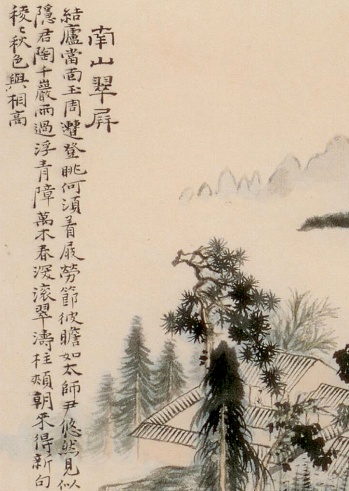 南山翠屏
結廬當面玉周遭登眺何須着屐勞節彼瞻如太師尹悠然見似
隱君陶千巖雨過浮青障萬木春深滾翠濤柱頰朝來得新句
稜〻秋色與相高